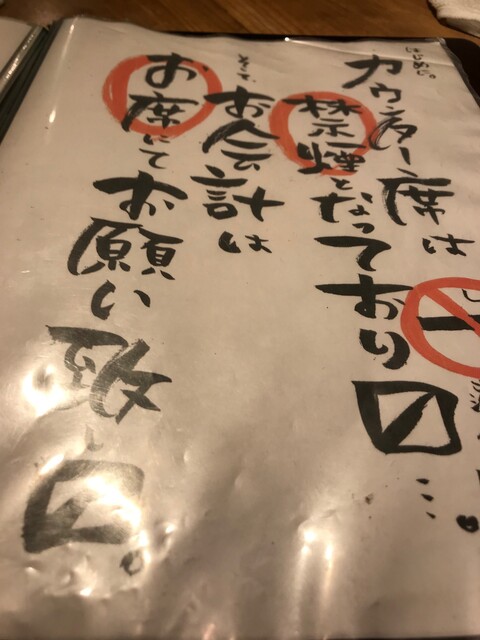 はじめに。
カウンター席は
禁煙となっており〼…
そして
お会計は
お席にて
お願い致し〼。